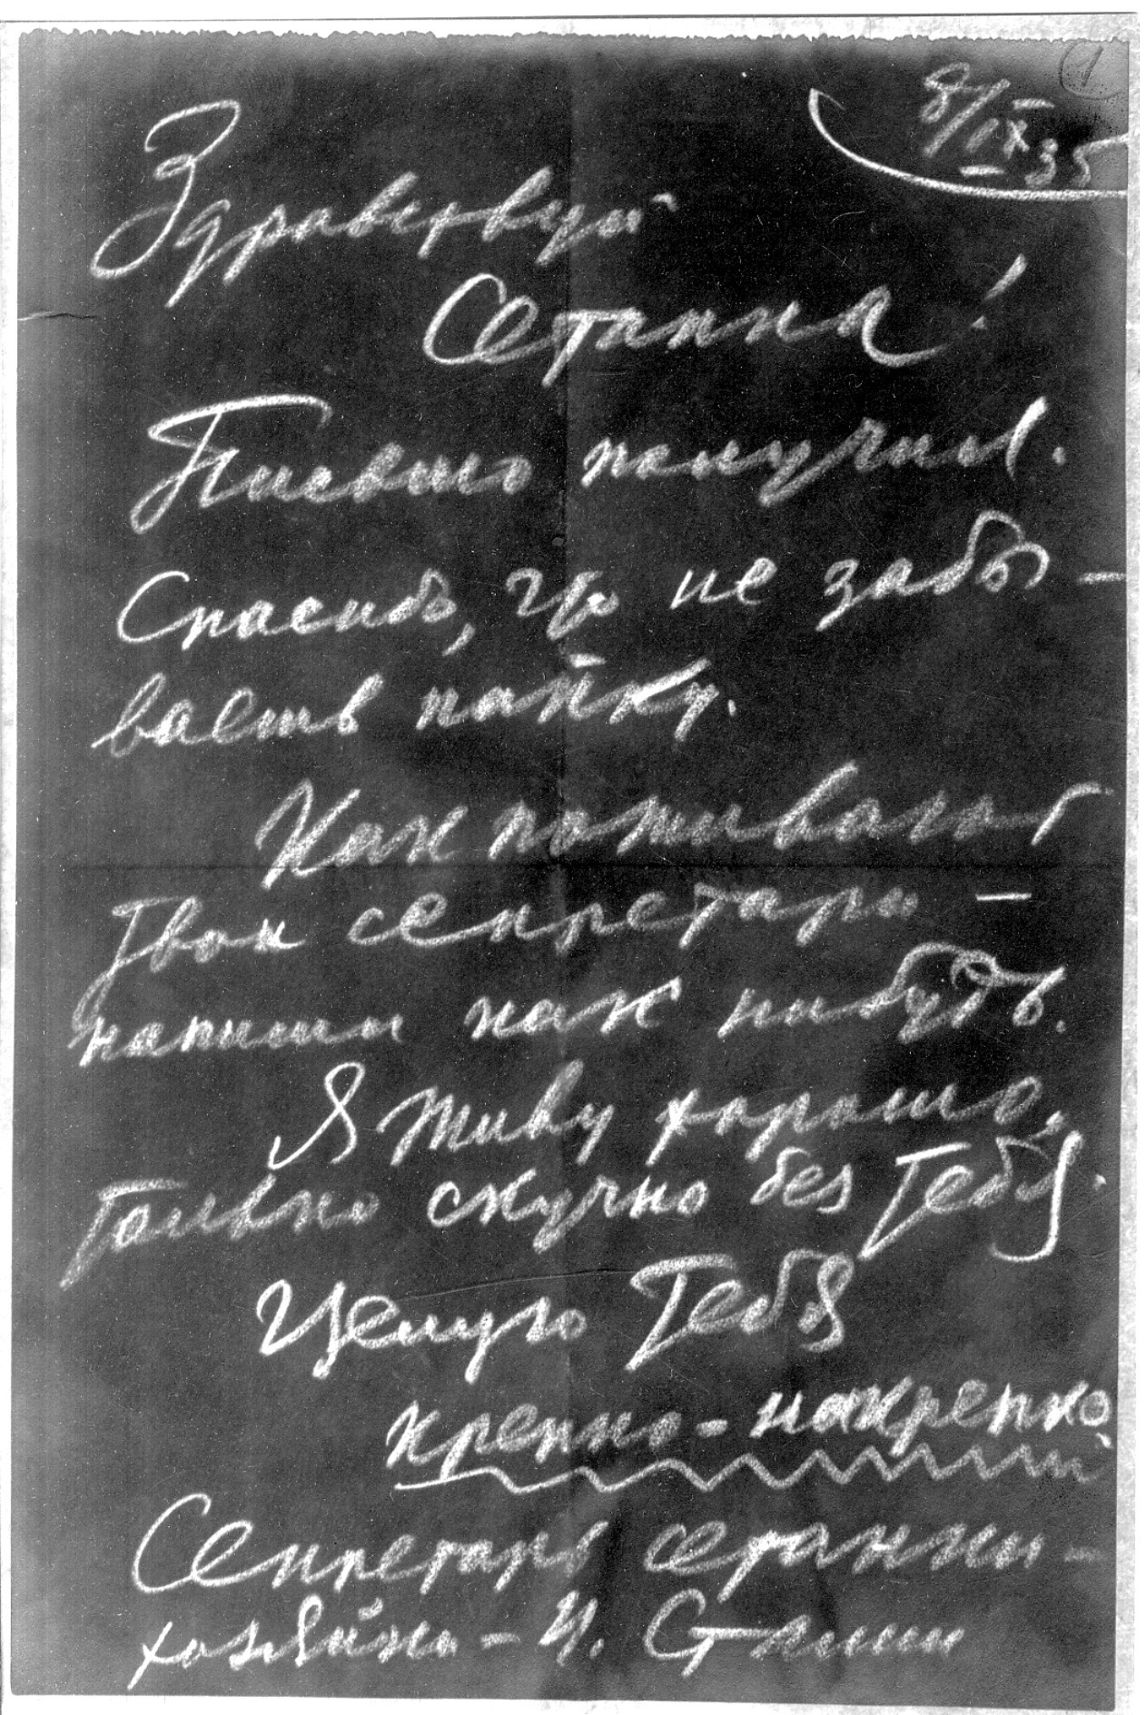 1
8/IX 35
Здравствуй
Сетанка!
Письмо получил.
Спасибо, что не забы-
ваешь папку.
Как поживают
Твои секретари –
напиши как нибудь.
Я живу хорошо,
только скучно без Тебя.
Целую Тебя
крепко-накрепко
Секретарь сетанки-
хозяйки – И. Сталин